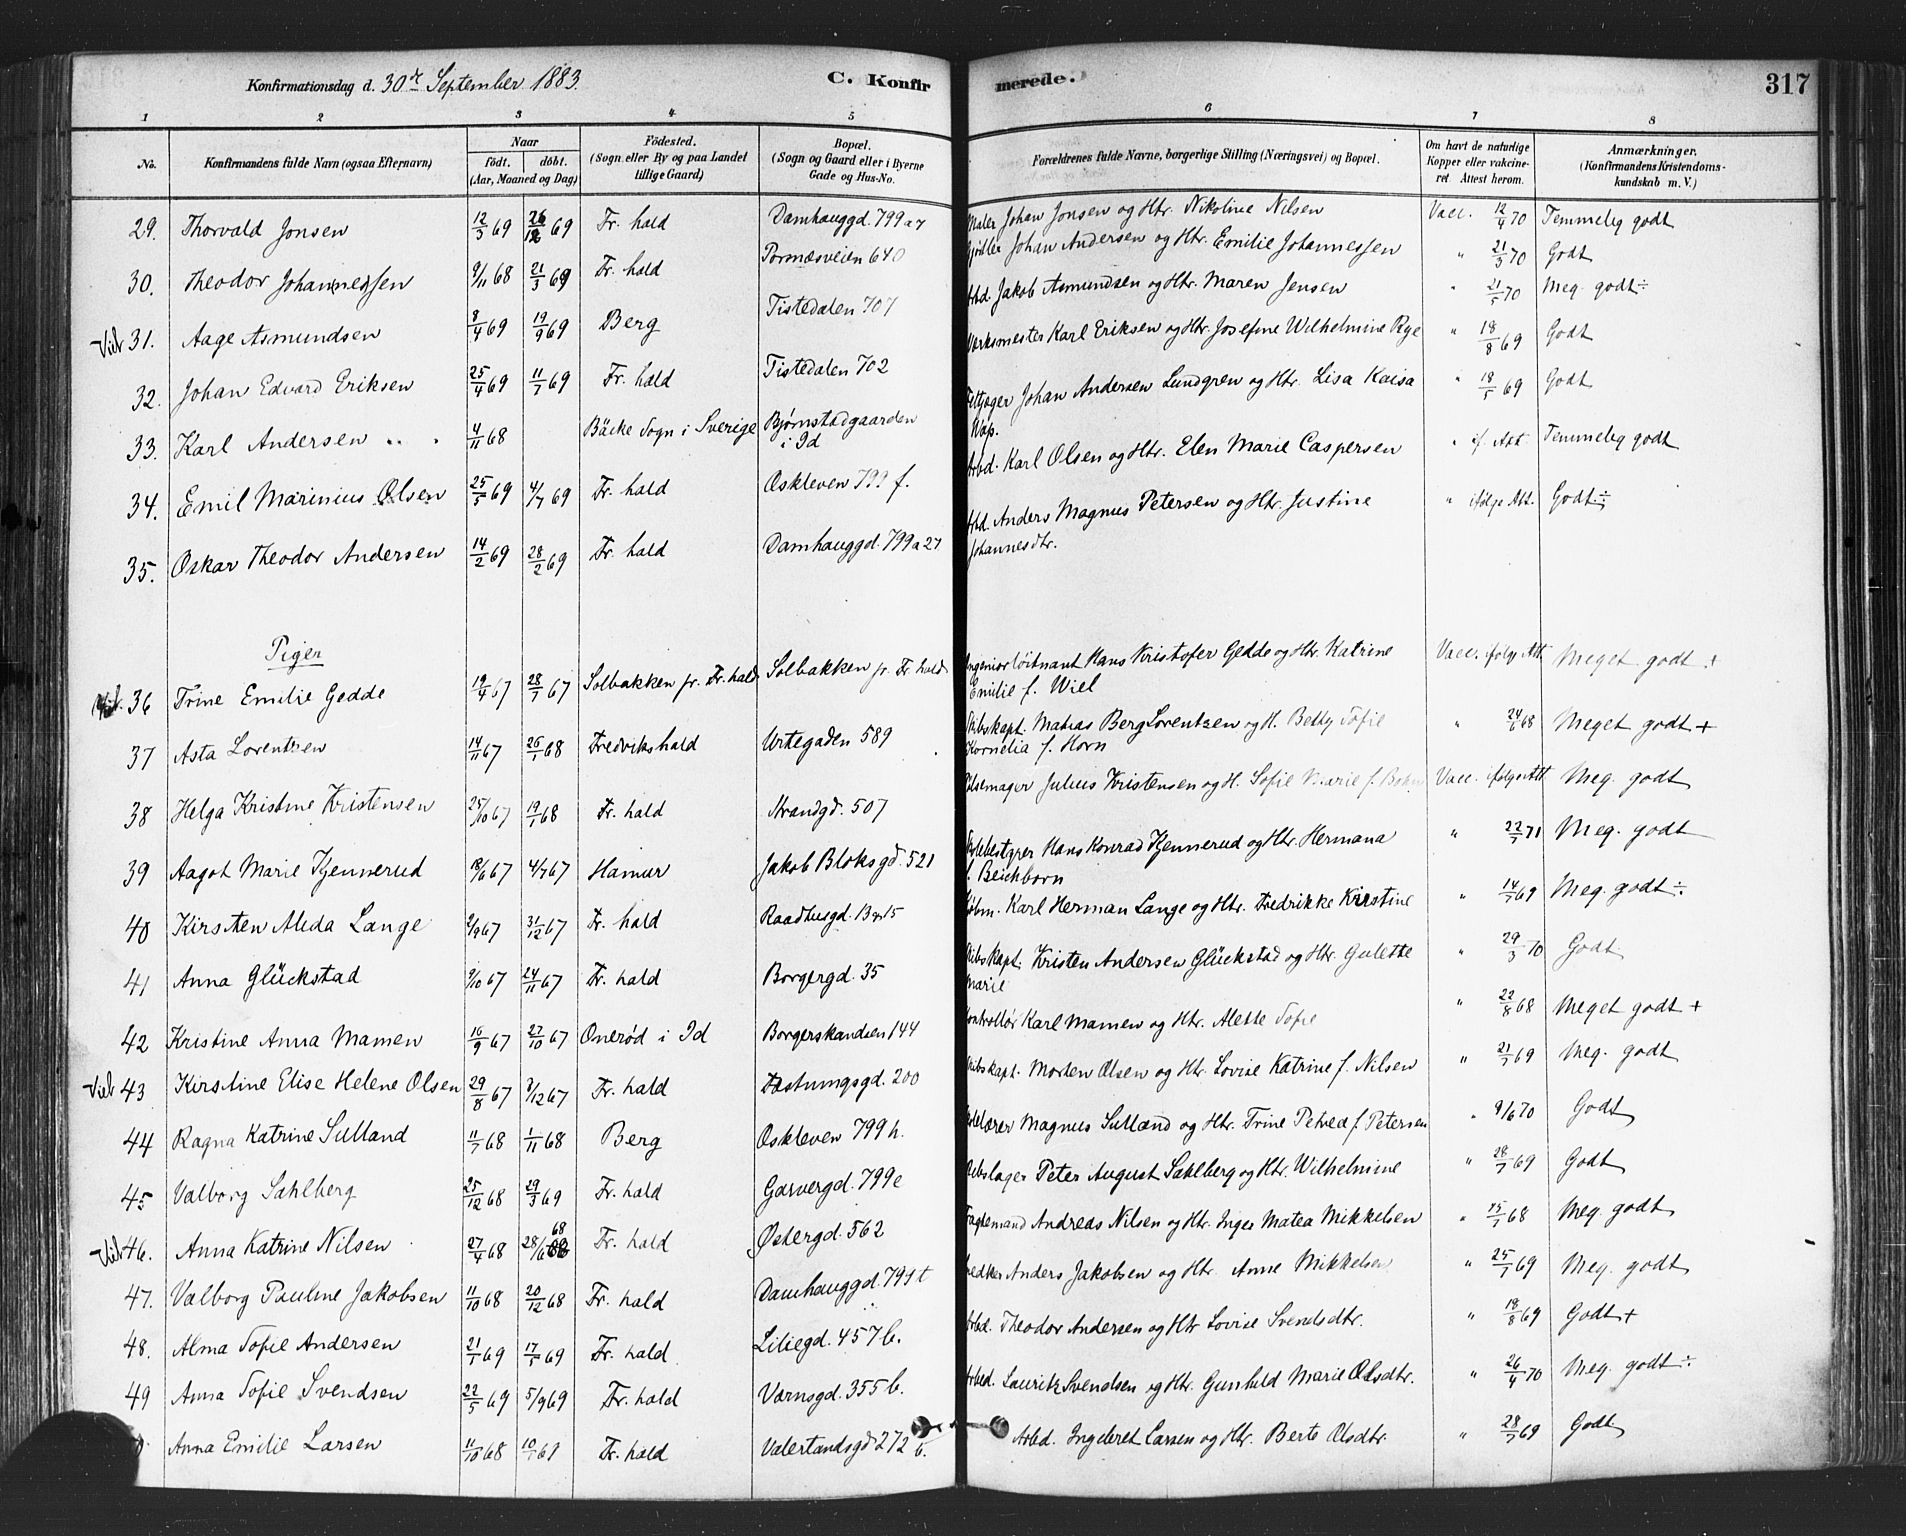 Konfirmationsdag d. 30te September 1883. C. Konfirmerede. 317
1 2 3 4 5 6 7 8
No. Konfirmandens fulde Navn (ogsaa Efternavn) Naar født. døbt. (Aar, Maaned og Dag) Födested. (Sogn eller By og paa Landet tillige Gaard) Bopæl. (Sogn og Gaard eller i Byerne Gade og Hus-No. Forældrenes fulde Navne, borgerlige Stilling (Næringsvei) og Bopæl. Om havt de naturlige Kopper eller vakcineret. Attest herom. Anmærkninger. (Konfirmandens Kristendomskundskab m. V.)
29. Thorvald Jonsen 12/3 69 26/12 69 Fr. hald Damhauggd. 799 a 7 Maler Johan Jonsen og Htr. Nikoline Nilsen Vacc. 12/4 70 Temmelig godt
30. Theodor Johannessen 9/11 68 21/3 69 Fr. hald 640 Johan Andersen og Htr. Emilie Johannessen " 21/3 70 Godt
31. Aage Asmundsen 8/4 69 19/9 69 Berg Tistedalen 707 Arbd. Jakob Asmundsen og Htr. Maren Jensen " 21/5 70 Meg. godt ÷
32. Johan Edvard Eriksen 25/4 69 11/7 69 Fr. hald Tistedalen 702 Værksmester Karl Eriksen og Htr. Josefine Wilhelmine Rye " 18/8 69 Godt
33. Karl Andersen 4/11 68 Bäcke Sogn i Sverige Bjørnstadgaarden i Id Johan Andersen Lundgren og Htr. Lisa Kaisa " 18/5 69 Godt
34. Emil Marinius Olsen 25/5 69 4/7 69 Fr. hald Oskleven 799 f. Arbd. Karl Olsen og Htr. Elen Marie Caspersen " if. Att Temmelig godt
35. Oskar Theodor Andersen 14/2 69 28/2 69 Fr. hald Damhauggd. 799 a 27 Arbd. Anders Magnus Petersen og Htr. Justine Johannesdtr. " ifølge Att. Godt ÷
Piger
36 Trine Emilie Gedde 19/4 67 28/7 67 Solbakken pr. Fr. hald Solbakken pr. Fr. hald Ingeniørløitnant Hans Kristofer Gedde og Htr. Katrine Emilie f. Wiel Vacc. ifølge Att Meget godt +
37 Asta Lorentzen 14/11 67 26/1 68 Fredrikshald Urtegaden 589 Skibskapt. Matias Berg Lorentzen og H. Betty Sofie Kornelia f. Horn " 24/6 68 Meget godt +
38 Helga Kristine Kristensen 25/10 67 19/1 68 Fr. hald Strandgd. 507 Pølsemager Julius Kristensen og H. Sofie Marie f. Vacc. ifølge Att Meg. godt
39 Aagot Marie Kjennerud 18/6 67 4/7 67 Hamar Jakob Bloksgd. 521 Skolebestyrer Hans Konrad Kjennerud og Htr. Hermana f. Beichborn " 22/7 71 Meg. godt
40 Kirsten Aleda Lange 2/9 67 31/12 67 Fr. hald Raadhusgd. 15 Kjøbm. Karl Herman Lange og Htr. Fredrikke Kirstine " 14/7 69 Meg. godt ÷
41 Anna Glückstad 9/10 67 24/11 67 Fr. hald Borgergd. 35 Skibskapt. Kristen Andersen Glückstad og Htr. Gulette Marie " 29/3 70 Godt
42 Kristine Anna Mamen 16/9 67 27/10 67 Onerød i Id Borgerskandsen 144 Kontrollør Karl Mamen og Htr. Alette Sofie " 22/8 68 Meget godt +
43 Kirstine Elise Helene Olsen 29/8 67 8/12 67 Fr. hald Fæstningsgd. 200 Skibskapt. Morten Olsen og Htr. Lovise Katrine f. Nilsen " 21/7 69 Meg. godt
44 Ragna Katrine Sulland 11/7 68 1/11 68 Berg Oskleven 799 h. Magnus Sulland og Htr. Trine Petrea f. Petersen " 9/6 70 Godt
45 Valborg Sahlberg 25/12 68 29/3 69 Fr. hald Garvergd. 799 e Peter August Sahlberg og Htr. Wilhelmine " 28/7 69 Godt
46. Anna Katrine Nilsen 27/4 68 28/6 68 Fr. hald Østergd. 562 Andreas Nilsen og Htr. Inger Matea Mikkelsen " 15/7 68 Meg. godt
47. Valborg Pauline Jakobsen 11/10 68 20/12 68 Fr. hald Damhauggd. 799 t Anders Jakobsen og Htr. Anne Mikkelsen " 25/7 69 Meg. godt
48. Alma Sofie Andersen 21/1 69 17/5 69 Fr. hald Liliegd. 457 b. Arbd. Theodor Andersen og Htr Lovise Svendsdtr. " 18/8 69 Godt +
49 Anna Sofie Svendsen 22/5 69 5/9 69 Fr. hald Værnsgd. 355 b. Arbd. Laurits Svendsen og Htr. Gunhild Marie Olsdtr. " 26/4 70 Meg. godt ÷
Anna Emilie Larsen 11/10 68 10/1 69 Fr. hald 272 b. Arbd. Ingebret Larsen og Htr. Berte Olsdtr. " 28/7 69 Godt